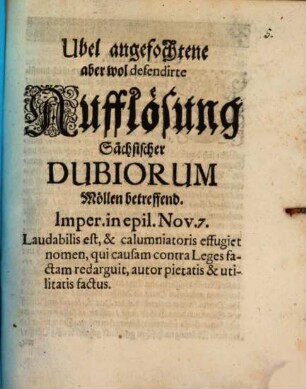 5.
Ubel angefochtene
aber wol defendirte
Aufflösung
Sächsischer
DUBIORUM
Möllen betreffend.
Imper. in epil. Nov. 7.
Laudabilis est, & calumniatoris effugiet
nomen, qui causam contra Leges fa-
ctam redarguit, autor pietatis & uti-
litatis factus.